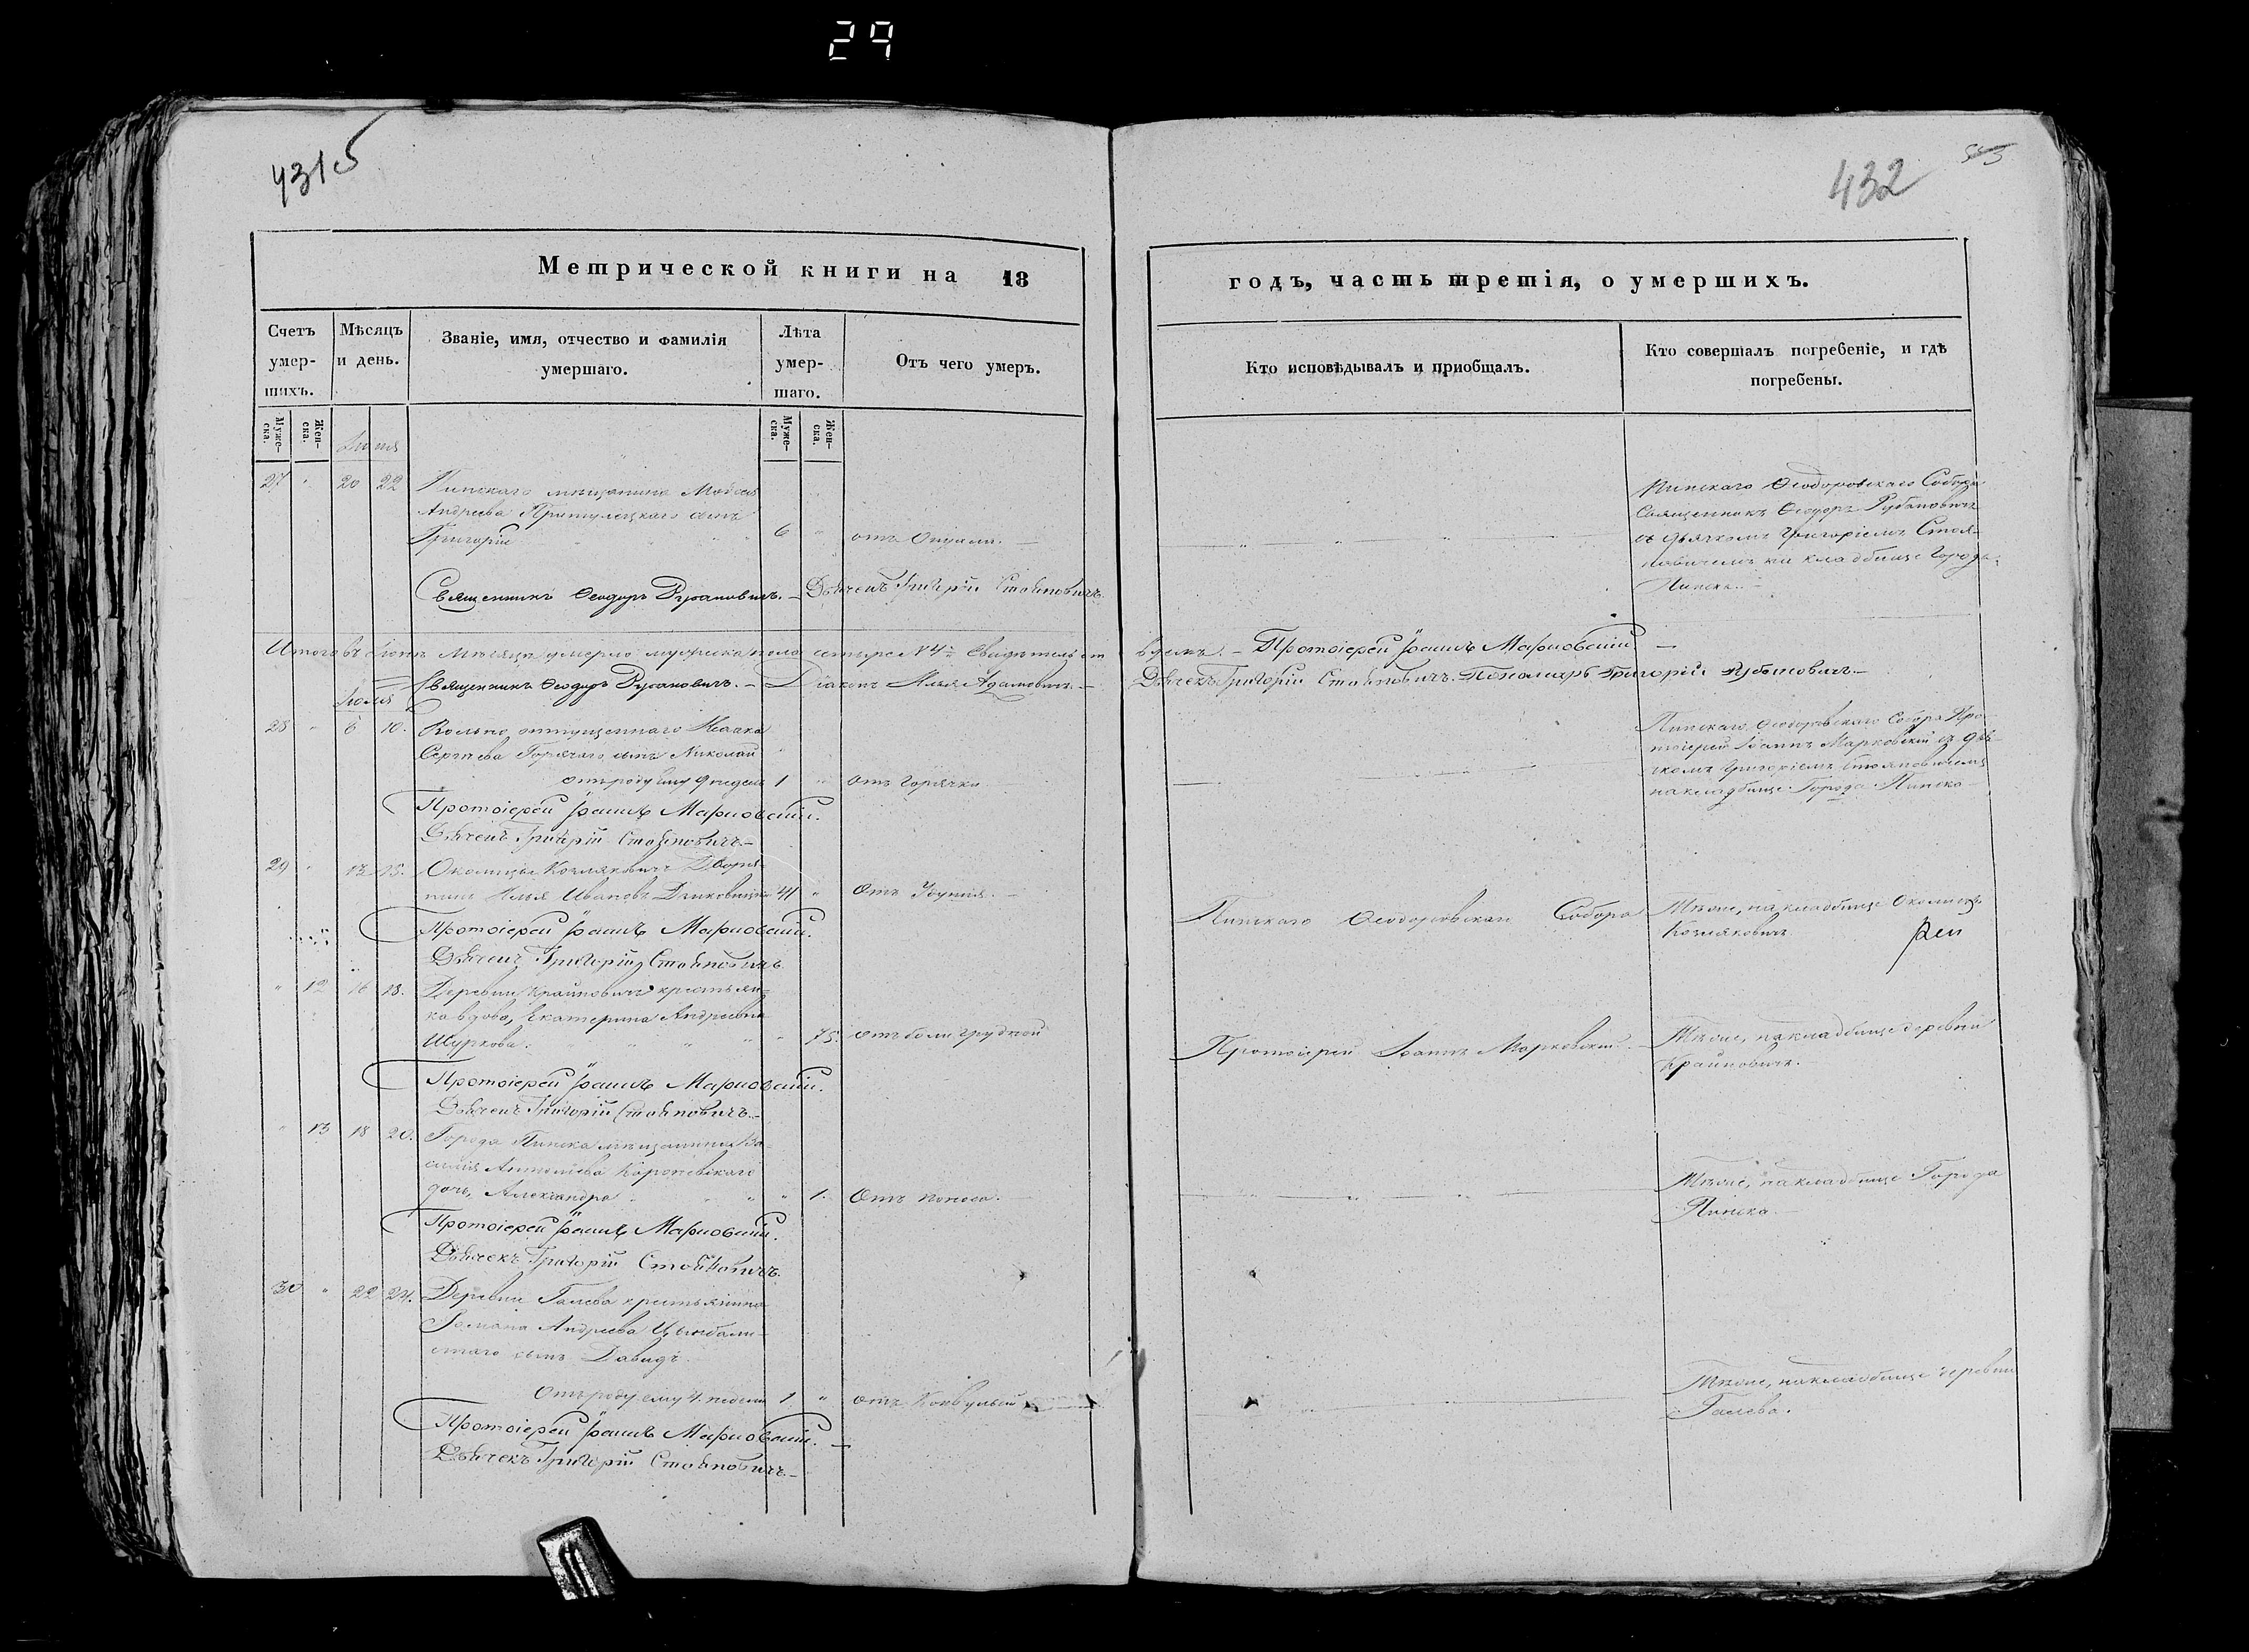 29
431об
432
Метрической книги на 18
годъ, часть третія, о умершихъ.
Счетъ умерших.
Мѣсяцъ и день.
Званіе, имя, отчество и фамилія умершаго.
Лѣта умершаго.
Отъ чего умеръ.
Кто исповѣдывалъ и пріобщалъ.
Кто совершалъ погребеніе, и гдѣ погребены.
Муже-ска.
Жен-ска.
Муже-ска.
Жен-ска.
Іюня
27 " 20 22 Пинскаго мѣщанина
Андреева сынъ
Григорій 6 " отъ
Пинскаго Ѳеодоровскаго Собора
Священникъ Ѳеодоръ Рубановичъ
съ дьячкомъ Григоріемъ Стоя-
новичемъ на кладбище Города
Пинска.
Священникъ Ѳеодоръ Рубановичъ. – Дьячекъ Григорій Стояновичъ.
Итого въ Іюнѣ мѣсяцѣ умерло мужеска пола четыре №4
вуемъ. – Протоіерей Іоаннъ Марковскій –
Священникъ Ѳеодоръ Рубановичъ. – Діаконъ Илья Адамовичъ. –
Дьячекъ Григорій Стояновичъ. Пономарь Григорій Рубановичъ. –
Іюля
28 " 6 10. Вольно отпущеннаго Исаака
Сергѣева Горячаго сынъ Николай
отъ роду ему 9 недель 1 " отъ горячки
Пинскаго Ѳеодоровскаго Собора Про-
тоіерей Іоаннъ Марковскій съ дья-
чкомъ Григоріемъ Стояновичемъ
на кладбище Города Пинска
Протоіерей Іоаннъ Марковскій.
Дьячекъ Григорій Стояновичъ. –
29 " 13 15. Околицы Козляковичъ Дворя-
нинъ Илья Ивановъ 41 " отъ
Пинскаго Ѳеодоровскаго Собора
Тѣже, на кладбище Околицы
Козляковичъ
Протоіерей Іоаннъ Марковскій.
Дьячекъ Григорій Стояновичъ
" 12 16 18. Деревни Крайновичъ крестьян-
ка вдова, Екатерина Андреева
Шуркова. " 75. отъ боли грудной
Протоіерей Іоаннъ Марковскій. –
Тѣже, на кладбище деревни
Крайновичъ. –
Протоіерей Іоаннъ Марковскій.
Дьячекъ Григорій Стояновичъ. –
" 13 18 20. Города Пинска мѣщанина Ва-
силія Антоніева
дочь, Александра " 1. отъ поноса. –
Тѣже, на кладбище Города
Пинска. –
Протоіерей Іоаннъ Марковскій.
Дьячекъ Григорій Стояновичъ.
30 " 22 24. Деревни Галева крестьянина
Романа Андреева Цымбали-
стаго сынъ Давидъ.
отъ роду ему 4. недели 1. " отъ Конвульсій
Тѣже, на кладбище деревни
Галева.
Протоіерей Іоаннъ Марковскій. –
Дьячекъ Григорій Стояновичъ –